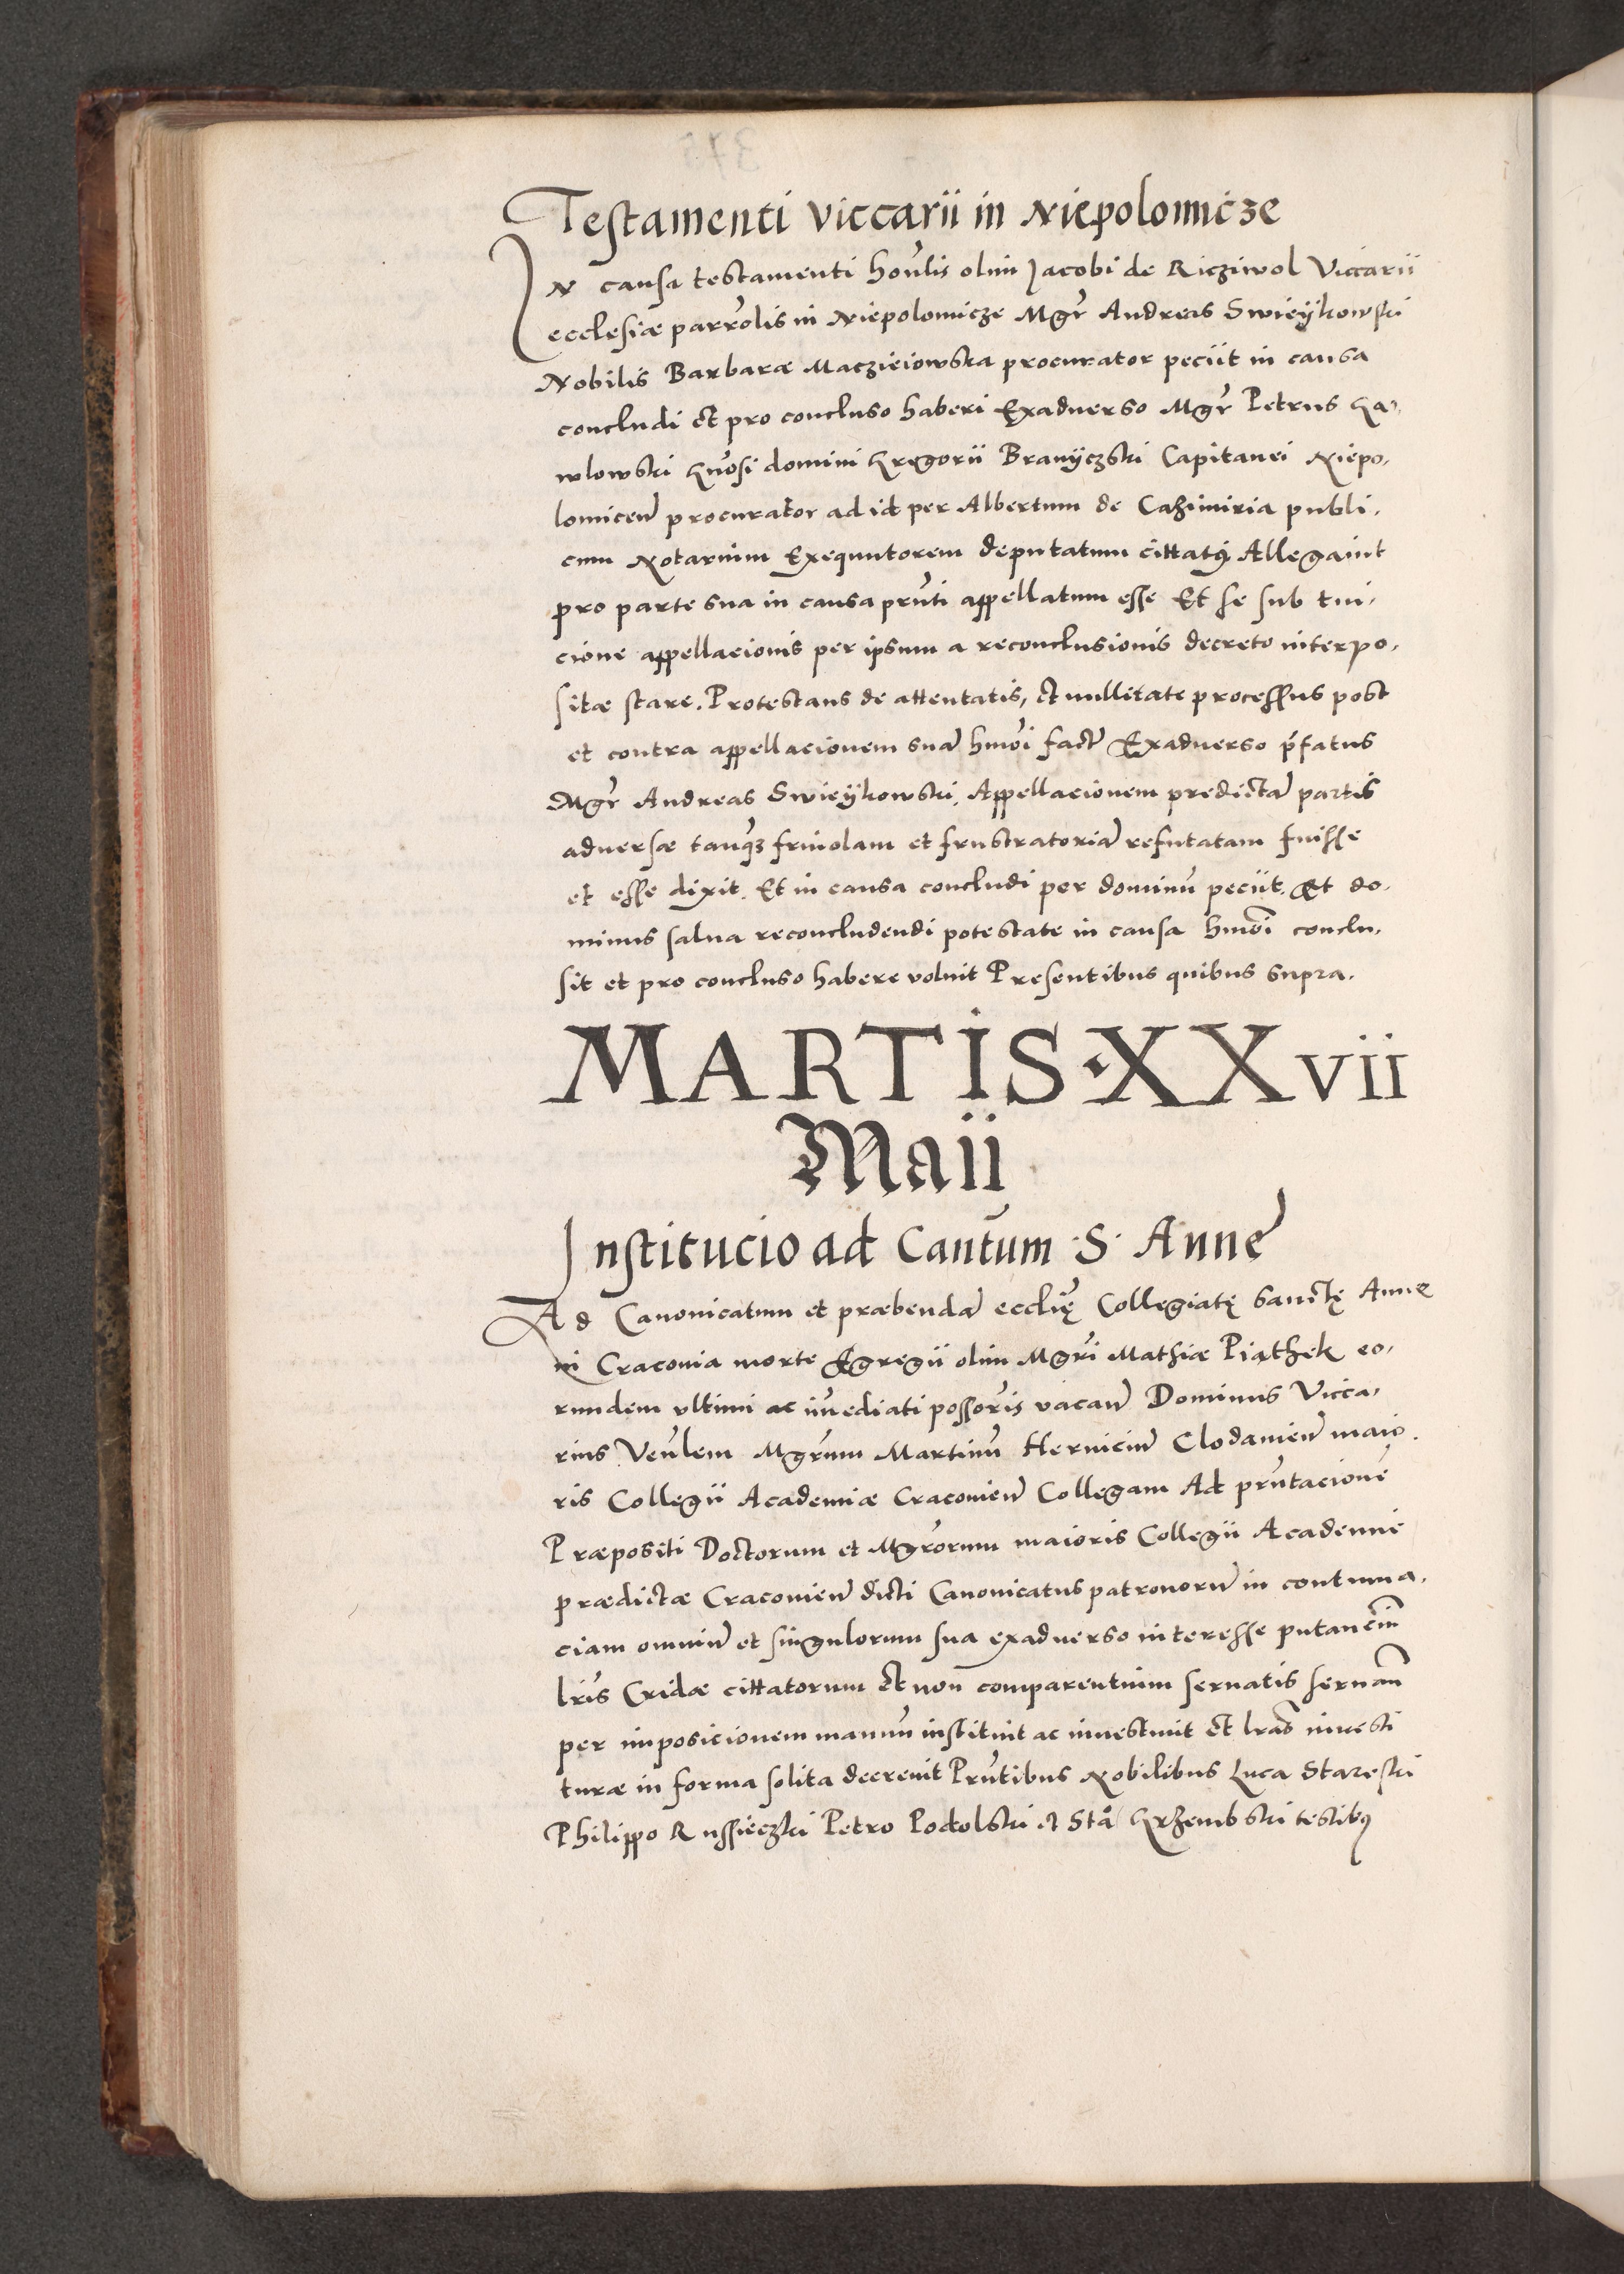 Testamenti viccarii in Niepolomicze
IN causa testamenti hon̄lis olim Jacobi de Ricziwol Viccarii
ecclesiæ parrōlis in Niepolomicze Mgr̄ Andreas Swieÿkowski
Nobilis Barbaræ Maczieiowska procurator peciit in causa
concludi et pro concluso haberi Exaduerso Mgr̄ Petrus Ga-
wlowski Gn̄osi domini Gregorii Branÿczski Capitanei Niepo-
lomicen̄ procurator ad id per Albertum de Cazimiria publi-
cum Notarium Exequutorem deputatum cittatꝰ Allegauit
pro parte sua in causa pn̄ti appellatum esse Et se sub tui-
cione appellacionis per ipsum a reconclusionis decreto interpo-
sitæ stare. Protestans de attentatis, et nullitate processus post
et contra appellacionem suā hmōi factā Exaduerso p̄fatus
Mgr̄ Andreas Swieÿkowski, Appellacionem predictā partis
aduersæ tanqȝ friuolam et frustratoriā refutatam fuisse
et esse dixit. Et in causa concludi per dominū peciit. Et do-
minus salua reconcludendi potestate in causa hmōi conclu-
sit et pro concluso habere voluit Presentibus quibus supra.
MARTIS·XXvii
Maii
Institucio ad Can̄tum ·S· Anne
Ad Canonicatum et præbendā ecclię̄ Collegiatę Sanctę Anne
in Craconia morte Egregii olim Mgr̄i Mathiæ Piąthek eo-
rundem vltimi ac im̄ediati possor̄is vacan̄ Dominus Vicca-
rius Ven̄lem Mgr̄um Martinū Hernicium Clodauien̄ maio-
ris Collegii Academiæ Cracouien̄ Collegam Ad pn̄tacionē
Præpositi Doctorum et Mgr̄orum maioris Collegii Academie
prædictæ Cracouien̄ dicti Canonicatus patronorū in contuma-
ciam omniū et singulorum sua exaduerso interesse putanciū
lr̄is Cridæ cittatorum et non comparentium seruatis seruan̄
per imposicionem manuū instituit ac inuestiuit et lr̄as inuesti
turæ in forma solita decreuit Pn̄tibus Nobilibus Luca Stareski
Philippo Russieczki Petro Podolski et Sta᷒ Grzembski testibꝰ